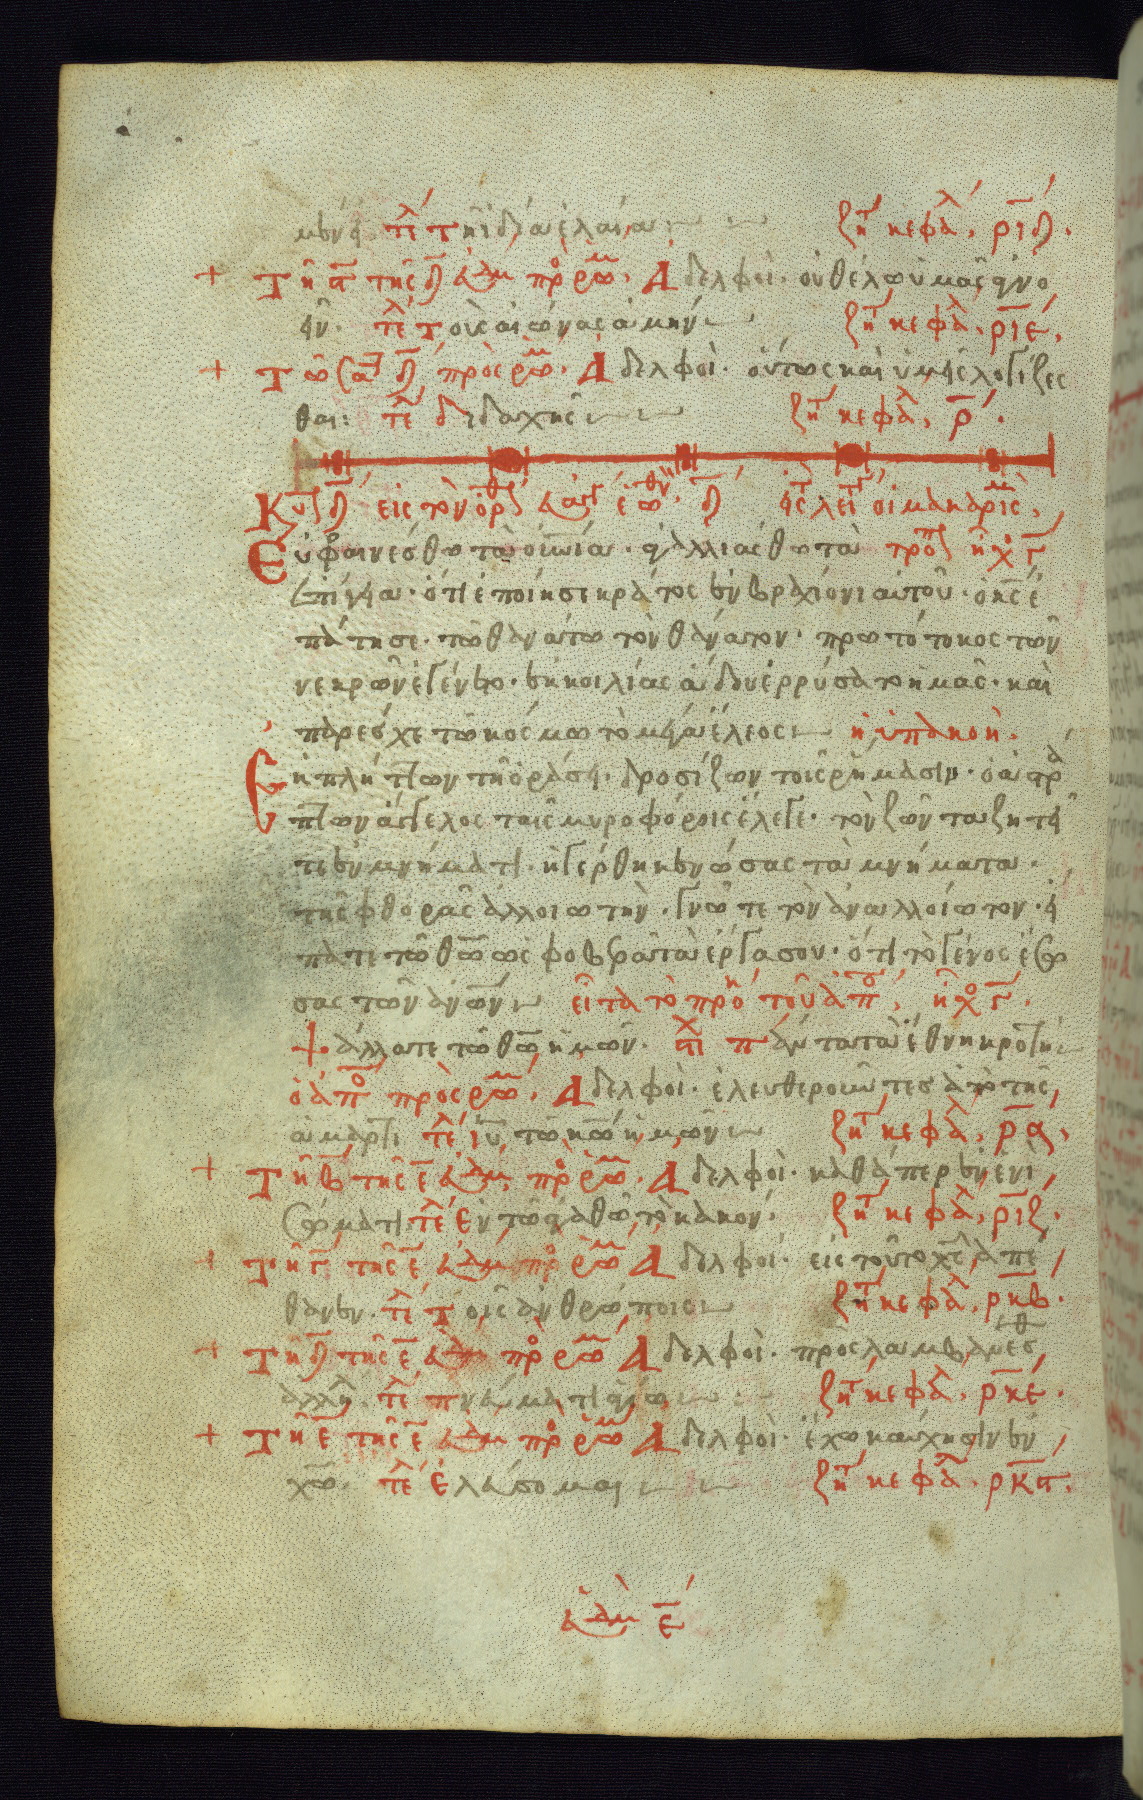 μένει. τελ τῇ ἰδίᾳ ἐλαίᾳ ζητ κεφαλ, ριδ.
+ Τῇ ϛ τῆς δ ἑβδομ πρ ρωμ. Ἀδελφοί. οὐ θέλω ὑμᾶς ἀγνο
εῖν. τελ τοὺς αἰῶνας ἀμήν ζητ κεφαλ, ριε,
+ Τῷ σαβ δ, πρὸς ρωμ. Ἀδελφοί. οὕτως καὶ ὑμεῖς λογίζες
θαι: τελ διδαχῆς ζητ κεφαλ, ρ.
Κυ δ εἰς τὸν ὄρθ εὐαγγ ἑωθιν, δ εἰς λειτ οἱ μακαρισ,
Εὐφραινέσθω τὰ οὐνια. ἀγαλλιάσθω τὰ τροπ ἦχ γ
ἐπίγεια. ὅτι ἐποίησε κράτος ἐν βραχίονι αὐτοῦ. ὁ κς ἐ
πάτησε τῷ θανάτῳ τὸν θάνατον. πρωτότοκος τῶν
νεκρῶν ἐγένετο. ἐκ κοιλίας ἅδου ἐρρύσατο ἡμᾶς. καὶ
παρέσχε τῷ κόσμῳ τὸ μέγα ἔλεος ἡ ὑπακοή.
Ἐκπλήττων τῇ ὁράσει. δροσίζων τοῖς ρήμασιν. ὁ ἀστρα
πτων ἄγγελος ταῖς μυροφόροις ἔλεγε. τὸν ζῶντα ζητεῖ
τε ἐν μνήματι. ἠγέρθη κενώσας τὰ μνήματα.
τῆς φθορᾶς ἀλλοιωτὴν. γνῶτε τὸν ἀναλλοίωτον. εἴ
πατε τῷ θω ὡς φοβερὰ τὰ ἔργα σου. ὅτι τὸ γένος ἔσω
σας τῶν ανων εἶτα τὸ προκ τοῦ ἀποστ, ἦχ γ.
Ψάλλατε τῷ θω ἡμῶν. στιχ Πάντα τὰ ἔθνη κροτησ
ὁ ἀποστ πρὸς ρωμ, Ἀδελφοί. ἐλευθερωθέντες ἀπὸ τῆς
ἁμαρτι τελ ιυ τῷ κω ἡμῶν ζητ κεφαλ, ρα,
+ Τῇ β τῆς ε ἑβδομ, πρ ρωμ. Ἀδελφοί. καθάπερ ἐν ἑνὶ
σώματι. τελ ἐν τῷ ἀγαθῷ τὸ κακόν. ζητ κεφαλ, ριζ.
+ Τῇ γ τῆς ε ἑβδομ πρ ρωμ Ἀδελφοί. εἰς τοῦτο χς ἀπέ
θανεν. τελ τοῖς ἀνθρώποις ζητ κεφαλ, ρκβ.
+ Τῇ δ τῆς ε ἑβδομ πρ ρωμ Ἀδελφοί. προσλαμβάνεσθ
ἀλλή. τελ πνεύματι ἁγίῳ ζητ κεφαλ, ρκε.
+ Τῇ ε τῆς ε ἑβδομ πρ ρωμ Ἀδελφοί. ἔχω καύχησιν ἐν
χω τελ ἐλεύσομαι ζητ κεφαλ. ρκϛ.
ἑβδομ ε